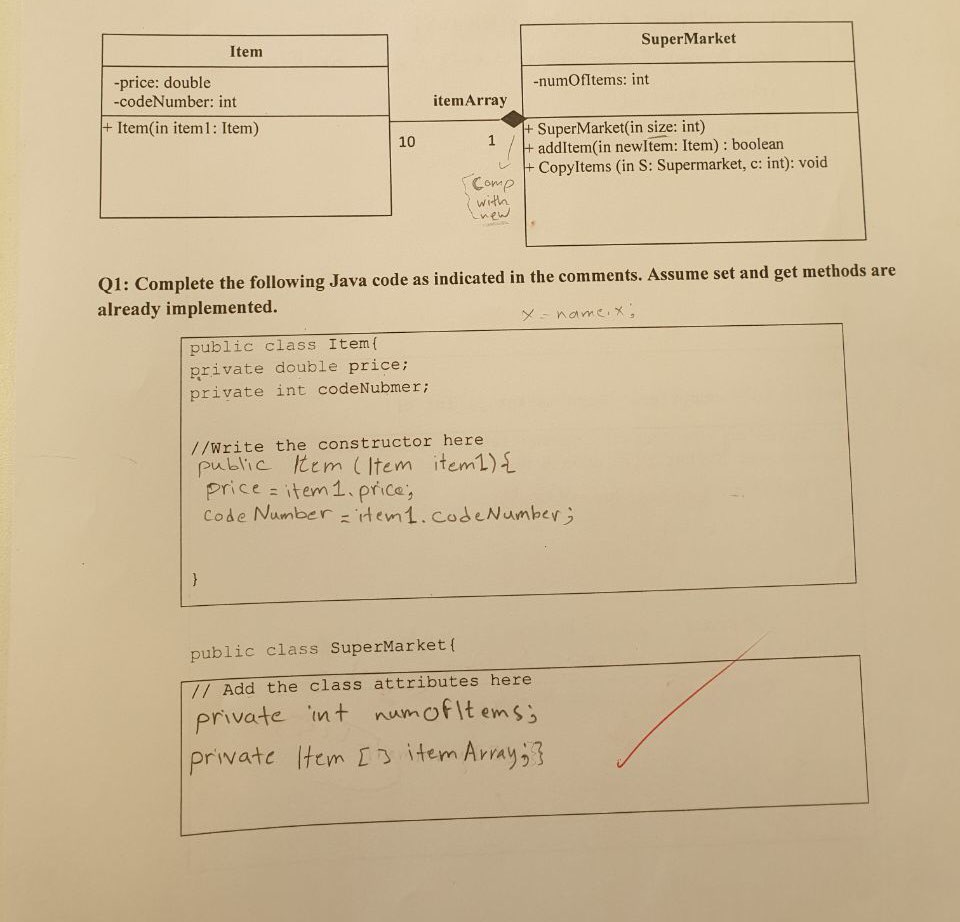 Item
-price: double
-codeNumber: int
+ Item(in item1: Item)
itemArray
10
1
SuperMarket
-numOfItems: int
+ SuperMarket(in size: int)
+ addItem(in newItem: Item) : boolean
+ CopyItems (in S: Supermarket, c: int): void
Comp
with
new
Q1: Complete the following Java code as indicated in the comments. Assume set and get methods are
already implemented.
x = name.x;
public class Item{
private double price;
private int codeNubmer;
//Write the constructor here
public Item (Item item1){
price = item1.price;
codeNumber = item1.codeNumber;
}
public class SuperMarket{
// Add the class attributes here
private int numofItems;
private Item [] itemArray;}